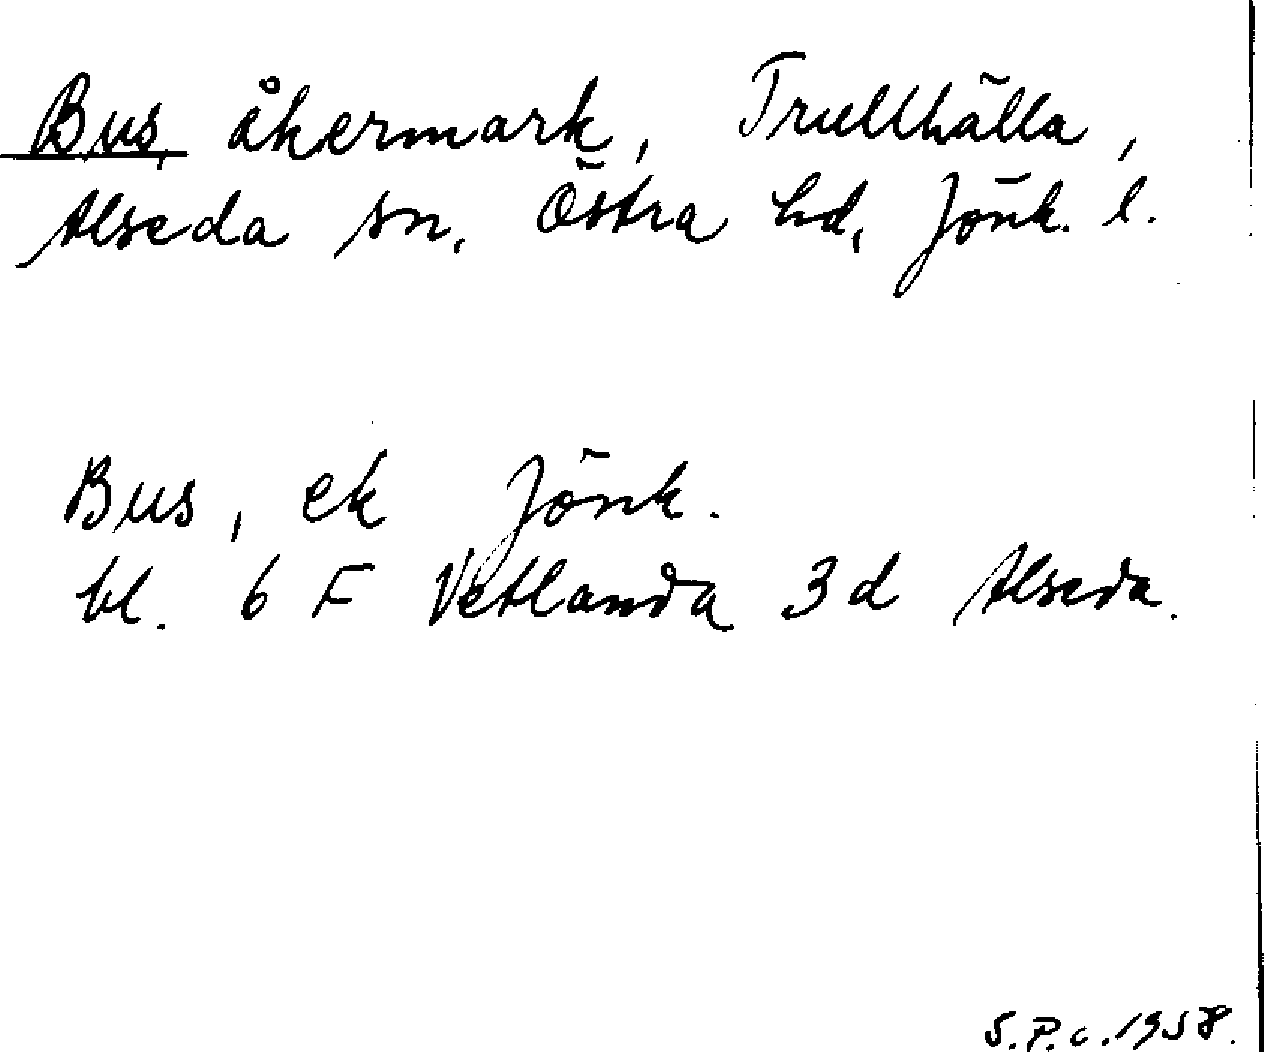 Bus, åkermark, Trullhälla,
Alseda sn, Östra hd, Jönk. l.
Bus, ek Jönk.
bl. 6 F Vetlanda 3 d Alseda.
S.P.c.1958.